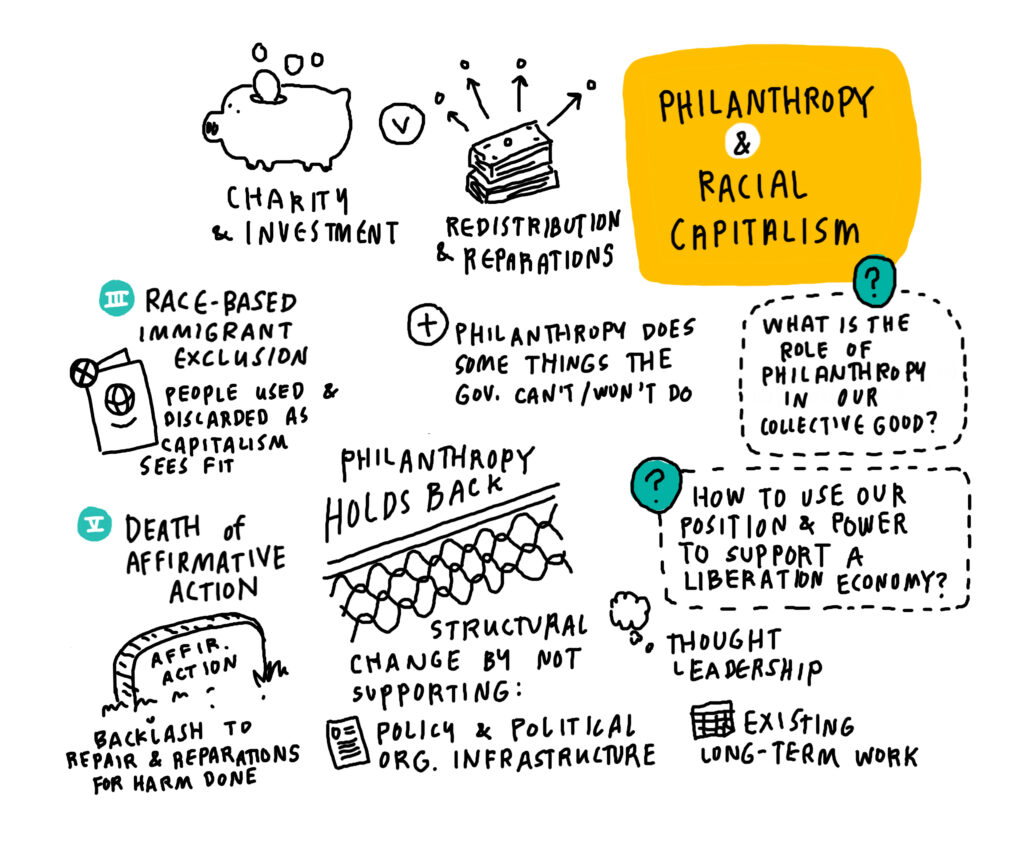 PHILANTHROPY
&
RACIAL
CAPITALISM
CHARITY
& INVESTMENT
V
REDISTRIBUTION
& REPARATIONS
III RACE-BASED
IMMIGRANT
EXCLUSION
PEOPLE USED &
DISCARDED AS
CAPITALISM
SEES FIT
+ PHILANTHROPY DOES
SOME THINGS THE
GOV. CAN'T/WON'T DO
?
WHAT IS THE
ROLE OF
PHILANTHROPY
IN OUR
COLLECTIVE GOOD?
V DEATH of
AFFIRMATIVE
ACTION
AFFIR.
ACTION
BACKLASH TO
REPAIR & REPARATIONS
FOR HARM DONE
PHILANTHROPY
HOLDS BACK
STRUCTURAL
CHANGE BY NOT
SUPPORTING:
POLICY & POLITICAL
ORG. INFRASTRUCTURE
?
HOW TO USE OUR
POSITION & POWER
TO SUPPORT A
LIBERATION ECONOMY?
THOUGHT
LEADERSHIP
EXISTING
LONG-TERM WORK